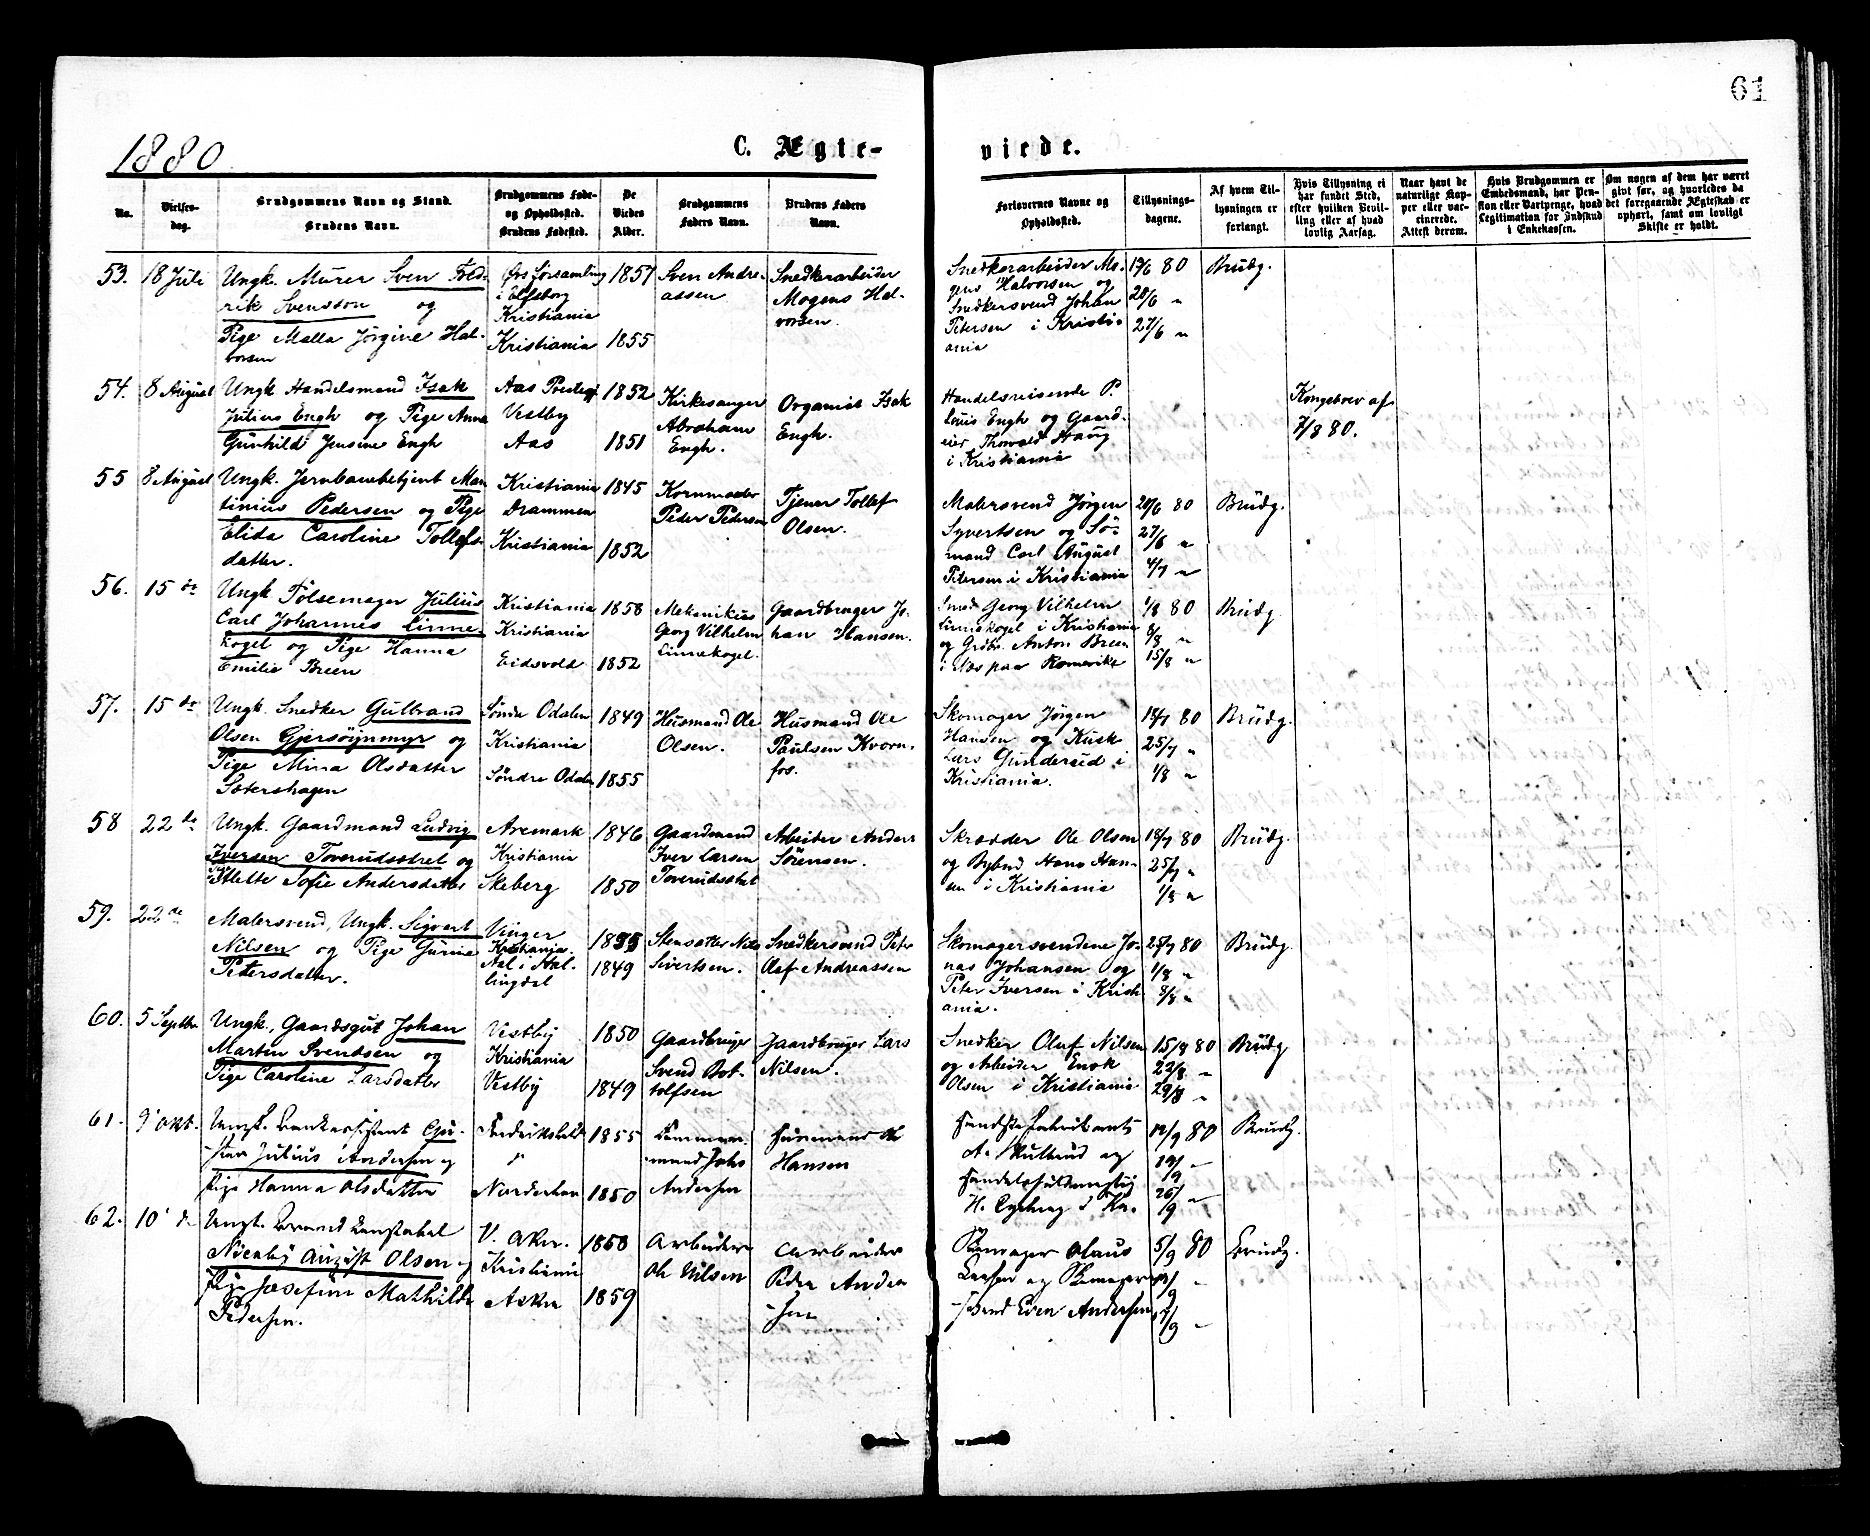 61
1880
C. Ægte-
viede.
No.
Vielses-
dag.
Brudgommens Navn og Stand.
Brudens Navn.
Brudgommens Føde-
og Opholdssted.
Brudens Fødested.
De
Viedes
Alder.
Brudgommens
Faders Navn.
Brudens Faders
Navn.
Forlovernes Navne og
Opholdssted.
Tillysnings-
dagene.
Af hvem Til-
lysningen er
forlangt.
Hvis Tillysning ei
har fundet Sted,
efter hvilken Bevil-
ling eller af hvad
lovlig Aarsag.
Naar havt de
naturlige Kop-
per eller vac-
cinerede.
Attest derom.
Hvis Brudgommen er
Embedsmand, har Pen-
sion eller Vartpenge, hvad
Legitimation for Indskud
i Enkekassen.
Om nogen af dem har været
gift før, og hvorledes da
det foregaaende Ægteskab er
ophørt, samt om lovligt
Skifte er holdt.
53. 18 Juli
Ungk. Murer Sven Fred-
rik Svendson og
Pige Malla Jørgine Hal-
vorsen
Ørs Forsamling
i Elfsborg
Kristiania
Kristiania
1857
1855
Sven Andre-
assen
Snedkerarbeider
Mogens Hal-
vorsen.
Snedkerarbeider Mo-
gens Halvorsen og
Snedkersvend Johan
Petersen i Kristi-
ania
13/6 80
20/6 "
27/6 "
Brudg.
54. 8 August
Ungk Handelsmand Isak
Julius Engh og Pige Anna
Gunhild Jensine Engh
Aas Prestegj
Vestby
Aas
1852
1851
Kirkesanger
Abraham
Engh.
Organist Isak
Engh.
Handelsreisende P.
Louis Engh og Gaard-
eier Thorvald Haug
i Kristiania
Kongebrev af
7/8 80.
55 8 August
Ungk. Jernbanebetjent Mar
tinius Pedersen og Pige
Elida Caroline Tollefs-
datter.
Kristiania
Drammen
Kristiania
1845
1852
Kornmaaler
Peder Pedersen
Tjener Tollef
Olsen.
Malersvend Jørgen
Syvertsen og Sø-
mand Carl August
Petersen i Kristiania
20/6 80
27/6 "
4/7 "
Brudg.
56. 15 de
Ungk Pølsemager Julius
Carl Johannes Linne-
kogel og Pige Hanna
Emilie Breen
Kristiania
Kristiania
Eidsvold
1858
1852
Mekanikus
Georg Vilhelm
Linnekogel.
Gaardbruger Jo-
han Hansen.
Smed Georg Vilhelm
Linnekogel i Kristiania
og Grdbr. Anton Breen
i Næs paa Romerike
1/8 80
8/8 "
15/8 "
Brudg.
57. 15 de
Ungk. Snedker Gulbrand
Olsen Gjersøiynmyr og
Pige Mina Olsdatter
Sætershagen
Søndr Odalen
Kristiania
Søndre Odalen
1849
1855
Husmand Ole
Olsen.
Husmand Ole
Paulsen Kvorn-
fos.
Skomager Jørgen
Hansen og Kusk
Lars Gunderud i
Kristiania.
18/7 80
25/7 "
1/8 "
Brudg.
58 22 de
Ungk. Gaardmand Ludvig
Iversen Toverudsæstret og
Mette Sofie Andersdatter
Aremark
Kristiania
Skeberg
1846
1850
Gaardmand
Iver Larsen
Arbeider Anders
Sørensen.
Skrædder Ole Olsen
og Bybud Hans Han-
sen i Kristiania
18/7 80
25/7 "
1/8 "
Brudg.
59. 22 de
Malersvend, Ungk. Sigvert
Nilsen og Pige Gurine
Petersdatter.
Vinger
Kristiania.
Aal i Hal-
lingdal
1855
1849
Stensætter Nils
Sivertsen.
Snedkersvend Peter
Olaf Andreassen
Skomagersvendene Jo-
nas Johansen og
Peter Iversen i Krist-
ania.
25/7 80
1/8 "
8/8 "
Brudg.
60. 5 Septbr
Ungk., Gaardsgut Johan
Martin Svendsen og
Pige Caroline Larsdatter
Vestby
Kristiania
Vestby
1850
1849
Gaardbruger
Svend Bot-
tolfsen
Gaardbruger Lars
Nilsen.
Snedker Oluf Nilsen
og Arbeider Enok
Olsen i Kristiania
15/8 80
22/8 "
29/8 "
Brudg
61. 9' Okt.
Ungk. Bankassistent Gu-
stav Julius Andersen og
Pige Hanna Olsdatter
Fredrikshald
"
Norderhov
1855
1850
Tømmer-
mand Johs
Andersen
Husmand Ole
Hansen
12/9 80
19/9 "
26/9 "
Brudg.
62. 10' d
Ungk. Brand Konstabel
August Olsen og
Pige Josefine Mathilde
Pedersen.
V. Aker.
Kristiania
Asker
1858
1859
Arbeider
Ole Nilsen
Arbeider
Peder Ander
sen
Skomager Olaus
Larsen og Skomager-
svend Even Andersen
5/9 80
12/9 "
Brudg.